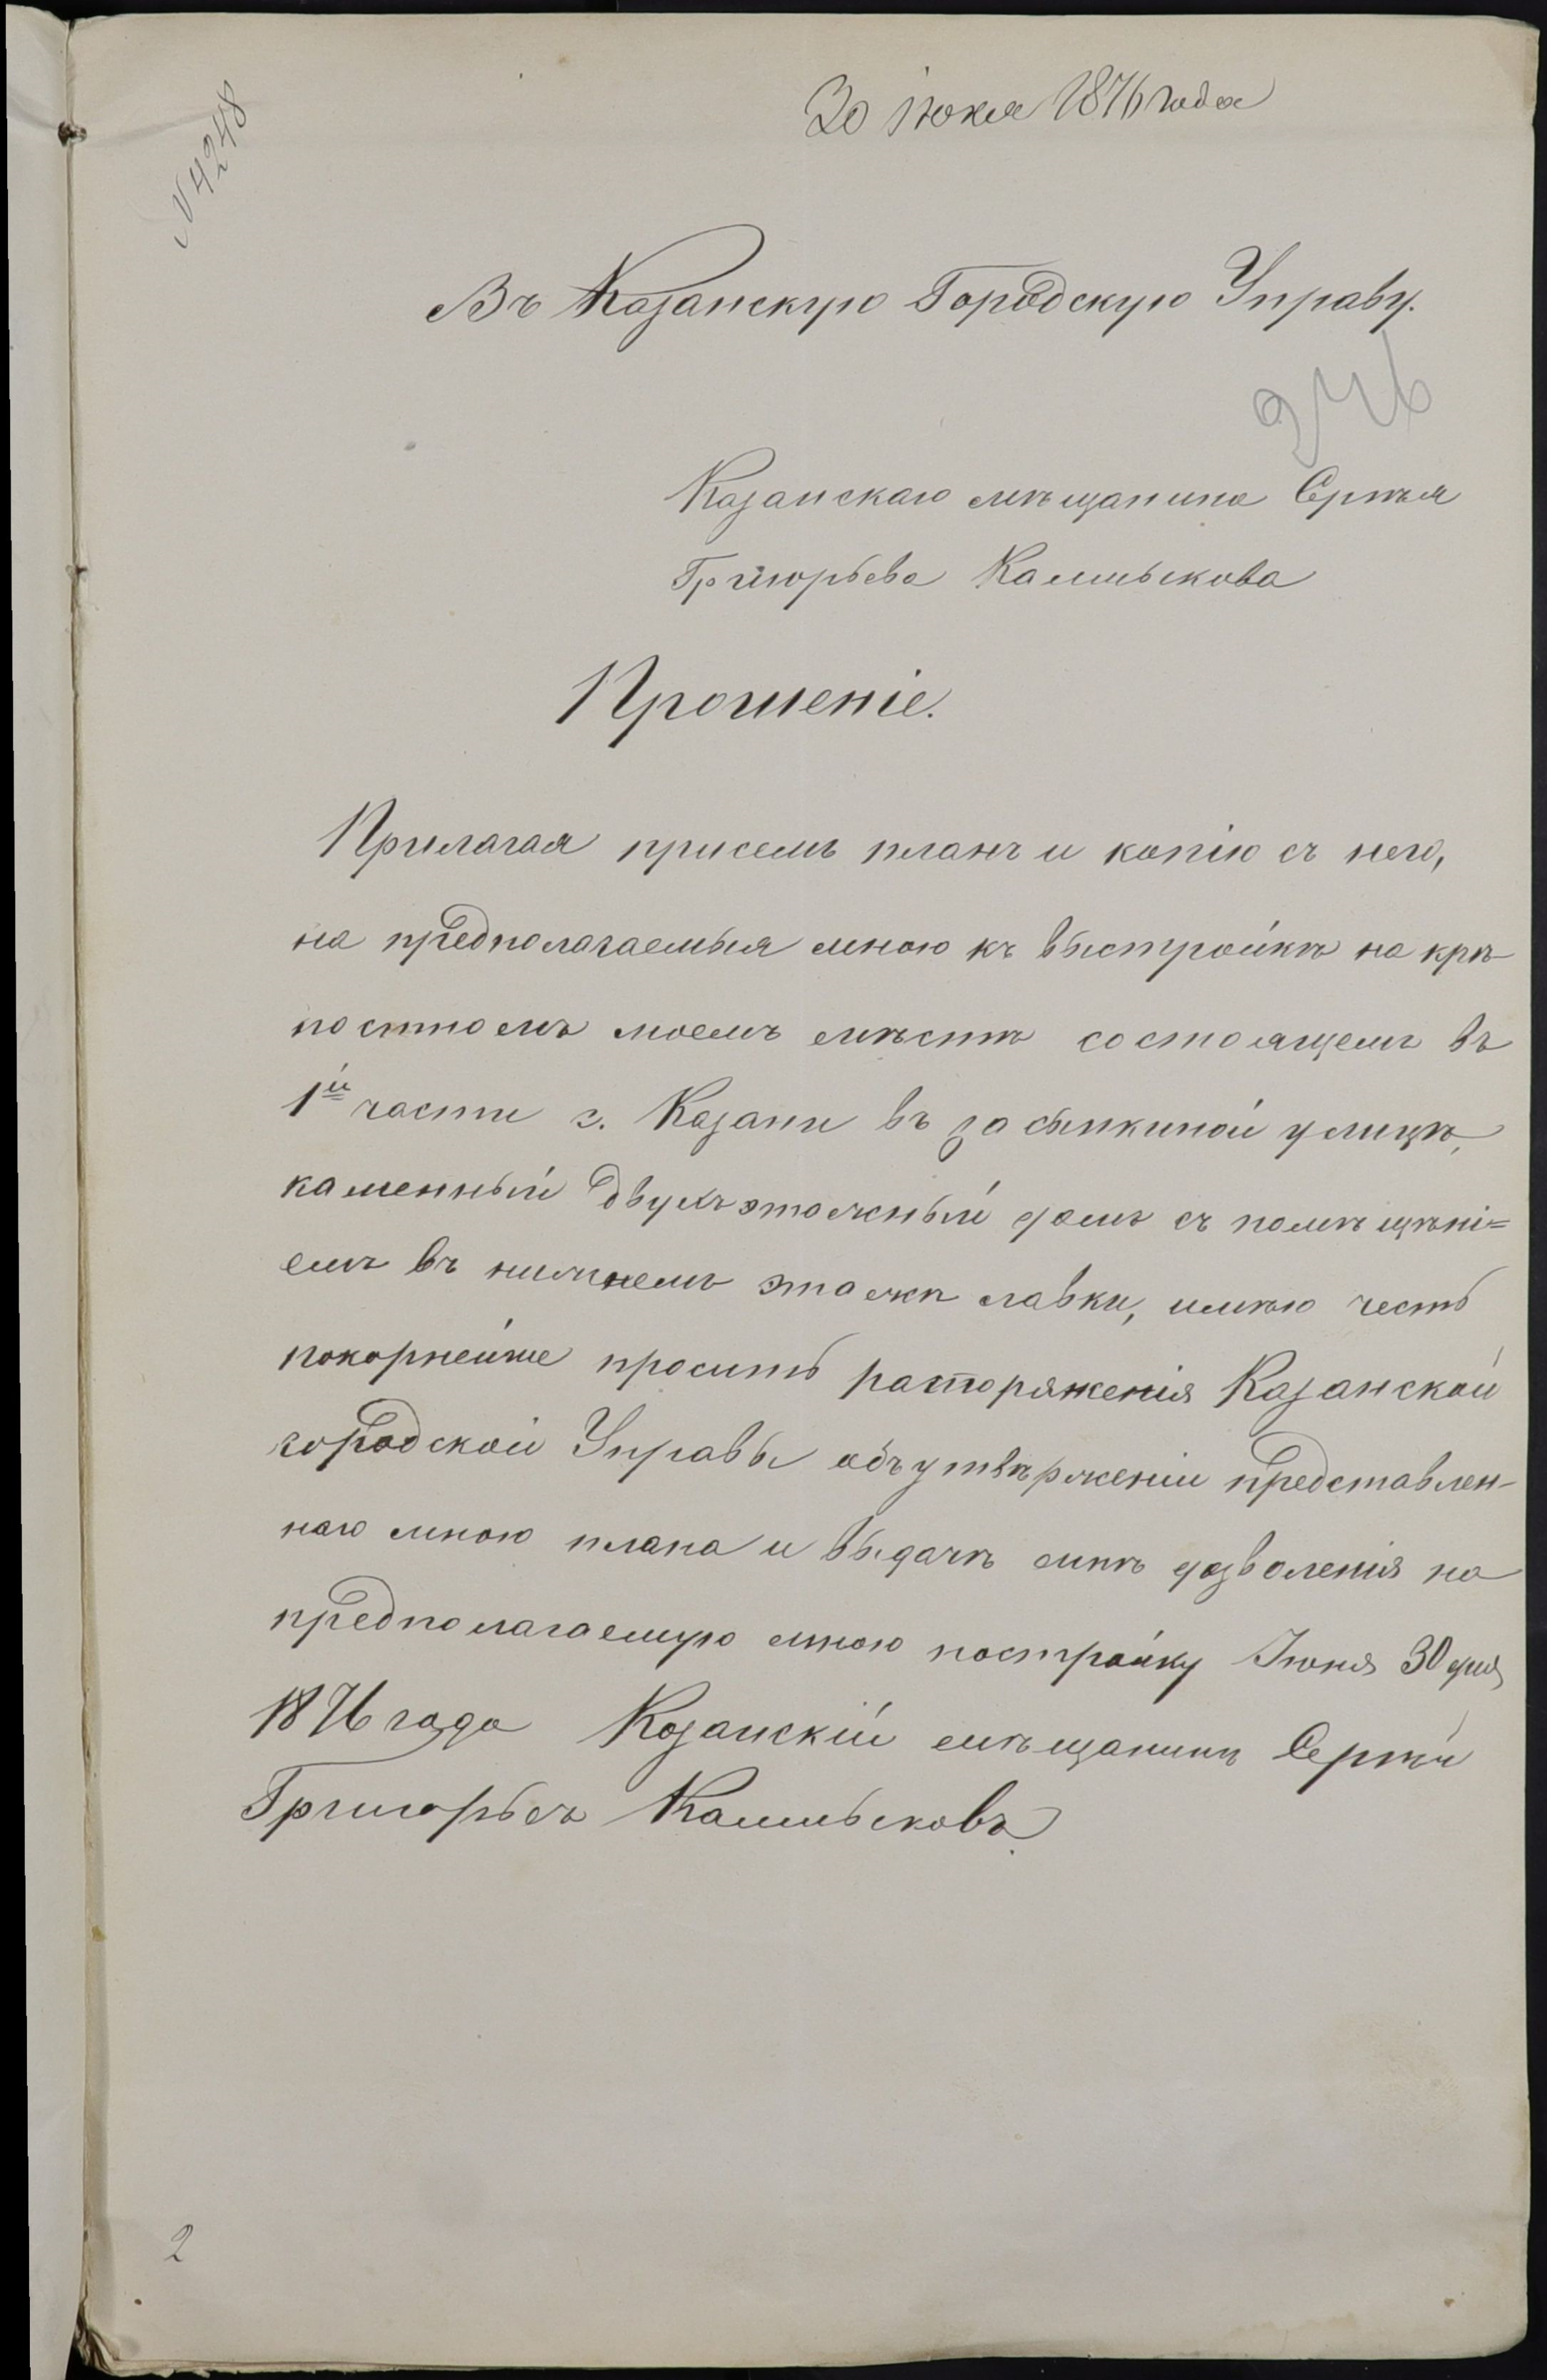 30 Іюня 1876 года
N 4248
Въ Казанскую Городскую Управу.
246
Казанскаго мѣщанина Сергѣя
Григорьева Калмыкова
Прошеніе.
Прилагая присемъ планъ и копію съ него,
на предполагаемыя мною къ выстройкѣ на крѣ-
постномъ моемъ мѣстѣ состоящемъ въ
1й части г. Казани въ засыпкиной улицѣ,
каменный двухъэтажный домъ съ помѣщѣні=
емъ въ нижнемъ этажѣ лавки, имѣю честь
покорнейше просить распоряженія Казанской
городской Управы объ утвѣржденіи представлен-
наго мною плана и выдачѣ мнѣ дозволенія на
предполагаемую мною постройку Іюня 30 дня
1876 года Казанскій мѣщанинъ Сергѣй
Григорьевъ Калмыковъ.
2